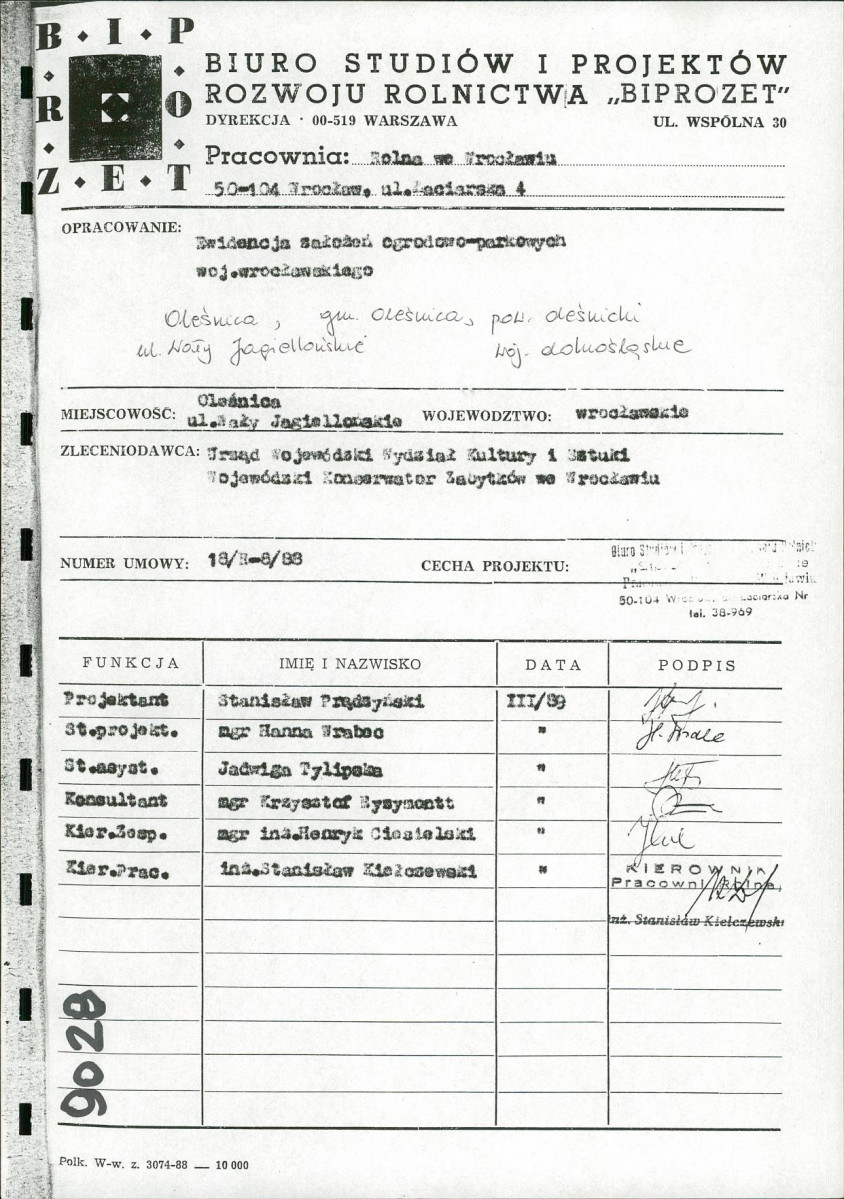 B I P
R O
Z E T
BIURO STUDIÓW I PROJEKTÓW
ROZWOJU ROLNICTWA „BIPROZET”
DYREKCJA · 00-519 WARSZAWA UL. WSPÓLNA 30
Pracownia: Rolna we Wrocławiu
50-104 Wrocław, ul.Łaciarska 4
OPRACOWANIE:
Ewidencja założeń ogrodowo-parkowych
woj.wrocławskiego
Oleśnica, gm. Oleśnica, pow. oleśnicki
ul. Wały Jagiellońskie woj. dolnośląskie
MIEJSCOWOŚĆ: Oleśnica
ul.Wały Jagiellońskie WOJEWODZTWO: wrocławskie
ZLECENIODAWCA: Urząd Wojewódzki Wydział Kultury i Sztuki
Wojewódzki Konserwator Zabytków we Wrocławiu
NUMER UMOWY: 18/R-8/88 CECHA PROJEKTU:
Biuro Studiów i
50-104 Łaciarska Nr
tel. 38-969
FUNKCJA IMIĘ I NAZWISKO DATA PODPIS
Projektant Stanisław Prądzyński III/89
St.projekt. mgr Hanna Wrabec "
St.asyst. Jadwiga Tylipska "
Konsultant mgr Krzysztof Eysymontt "
Kier.Zesp. mgr inż.Henryk Ciesielski "
Kier.Prac. inż.Stanisław Kiełczewski "
KIEROWNIK
Pracowni Rolnej
inż. Stanisław Kiełczewski
9028
Polk. W-w. z. 3074-88 — 10 000